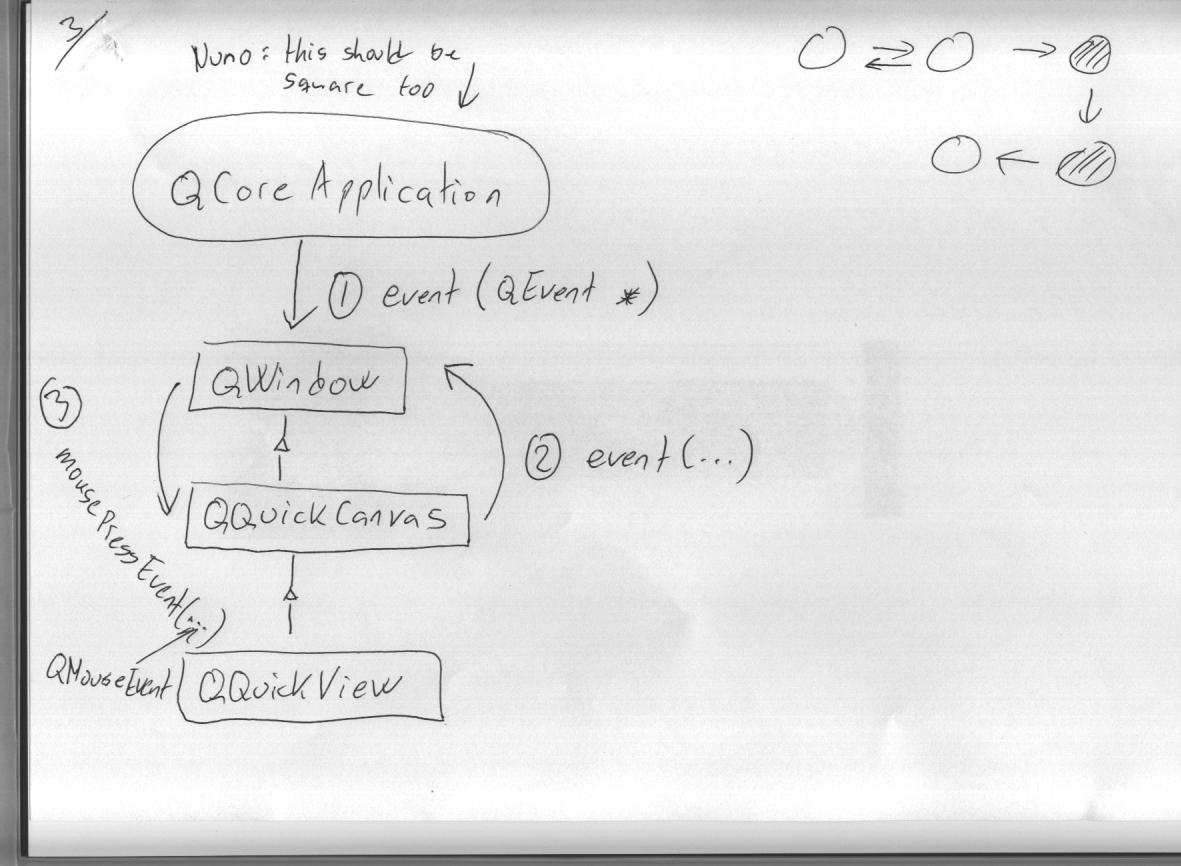 3/
Nuno: this should be
square too
QCoreApplication
① event (QEvent *)
QWindow
③
mousePressEvent(...)
② event (...)
QQuickCanvas
QMouseEvent
QQuickView